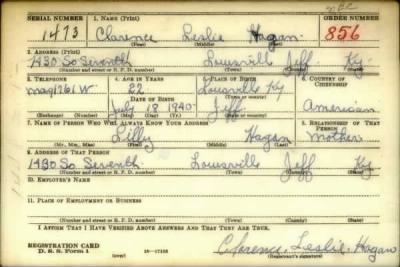 SERIAL NUMBER 1. NAME (Print) ORDER NUMBER
1473 Clarence Leslie Hagan 856
(First) (Middle) (Last)
2. ADDRESS (Print)
1430 So Seventh Louisville Jeff. Ky.
(Number and street or R. F. D. number) (Town) (County) (State)
3. TELEPHONE 4. AGE IN YEARS 5. PLACE OF BIRTH 6. COUNTRY OF CITIZENSHIP
Mag 1261 W 22 Louisville Ky
DATE OF BIRTH
July 18 1940 Jeff American
(Exchange) (Number) (Mo.) (Day) (Yr.) (State or country)
7. NAME OF PERSON WHO WILL ALWAYS KNOW YOUR ADDRESS 8. RELATIONSHIP OF THAT PERSON
Lilly Hagan Mother
(Mr., Mrs., Miss) (First) (Middle) (Last)
9. ADDRESS OF THAT PERSON
1430 So Seventh Louisville Jeff Ky
(Number and street or R. F. D. number) (Town) (County) (State)
10. EMPLOYER'S NAME
11. PLACE OF EMPLOYMENT OR BUSINESS
(Number and street or R. F. D. number) (Town) (County) (State)
I AFFIRM THAT I HAVE VERIFIED ABOVE ANSWERS AND THAT THEY ARE TRUE.
REGISTRATION CARD
D. S. S. Form 1 (over) 16—17105
Clarence Leslie Hagan
(Registrant's signature)